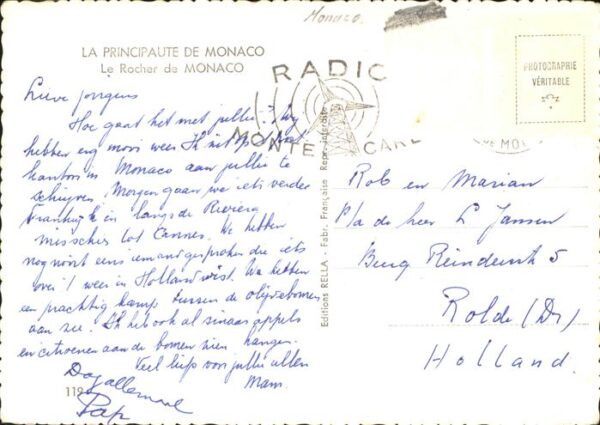 Monaco.
LA PRINCIPAUTE DE MONACO
Le Rocher de MONACO
RADIO
MONTE CARL
PHOTOGRAPHIE
VÉRITABLE
Lieve jongens
Hoe gaat het met jullie? Wij
hebben erg mooi weer. Ik zit op 't
kantoor in Monaco aan jullie te
schrijven. Morgen gaan we iets verder
Frankrijk in langs de Riviera
misschien tot Cannes. We hebben
nog nooit eens iemand gesproken die iets
over 't weer in Holland wist. We hebben
een prachtig kamp tussen de olijvebomen
aan zee. Ik heb ook al sinaasappels
en citroenen aan de bomen zien hangen.
Veel liefs voor jullie allen
Mam.
Dag allemaal
Pap
119
Editions RELLA - Fabr. Française Repr. Interdite
Rob en Marian
P/a de heer L Jansen
Burg Reinders 5
Rolde (Dr)
Holland.